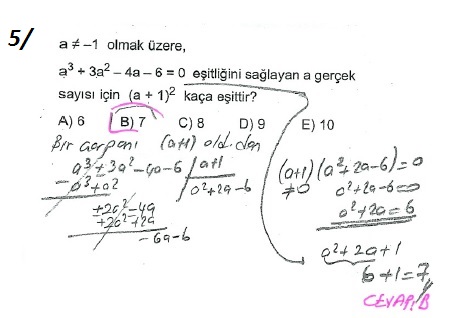 5/
a ≠ –1 olmak üzere,
a³ + 3a² – 4a – 6 = 0 eşitliğini sağlayan a gerçek
sayısı için (a + 1)² kaça eşittir?
A) 6 B) 7 C) 8 D) 9 E) 10
Bir çarpanı (a+1) old.dan
a³+3a²-4a-6 | a+1
-a³+a² a²+2a-6
+2a²-4a
+2a²+2a
-6a-6
(a+1)(a²+2a-6)=0
≠0 a²+2a-6=0
a²+2a=6
a²+2a+1
6+1=7
CEVAP:B